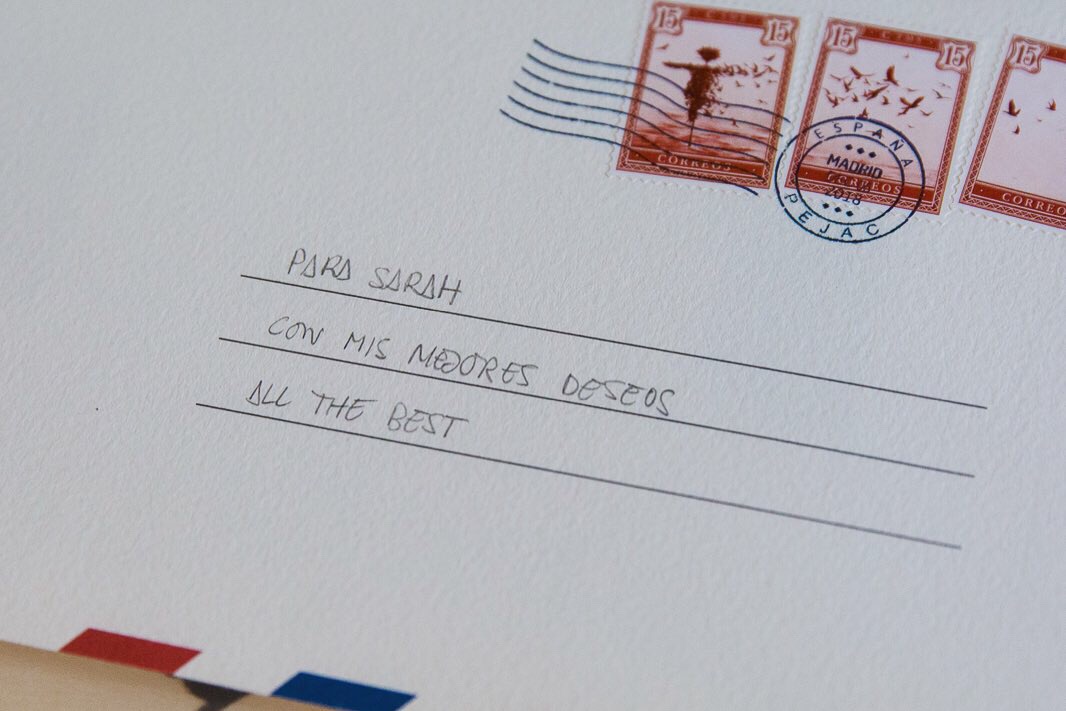 15 15
CORREOS
15 15
CORREOS
15
CORREO
ESPAÑA
MADRID
2018
PEJAC
PARA SARAH
CON MIS MEJORES DESEOS
ALL THE BEST